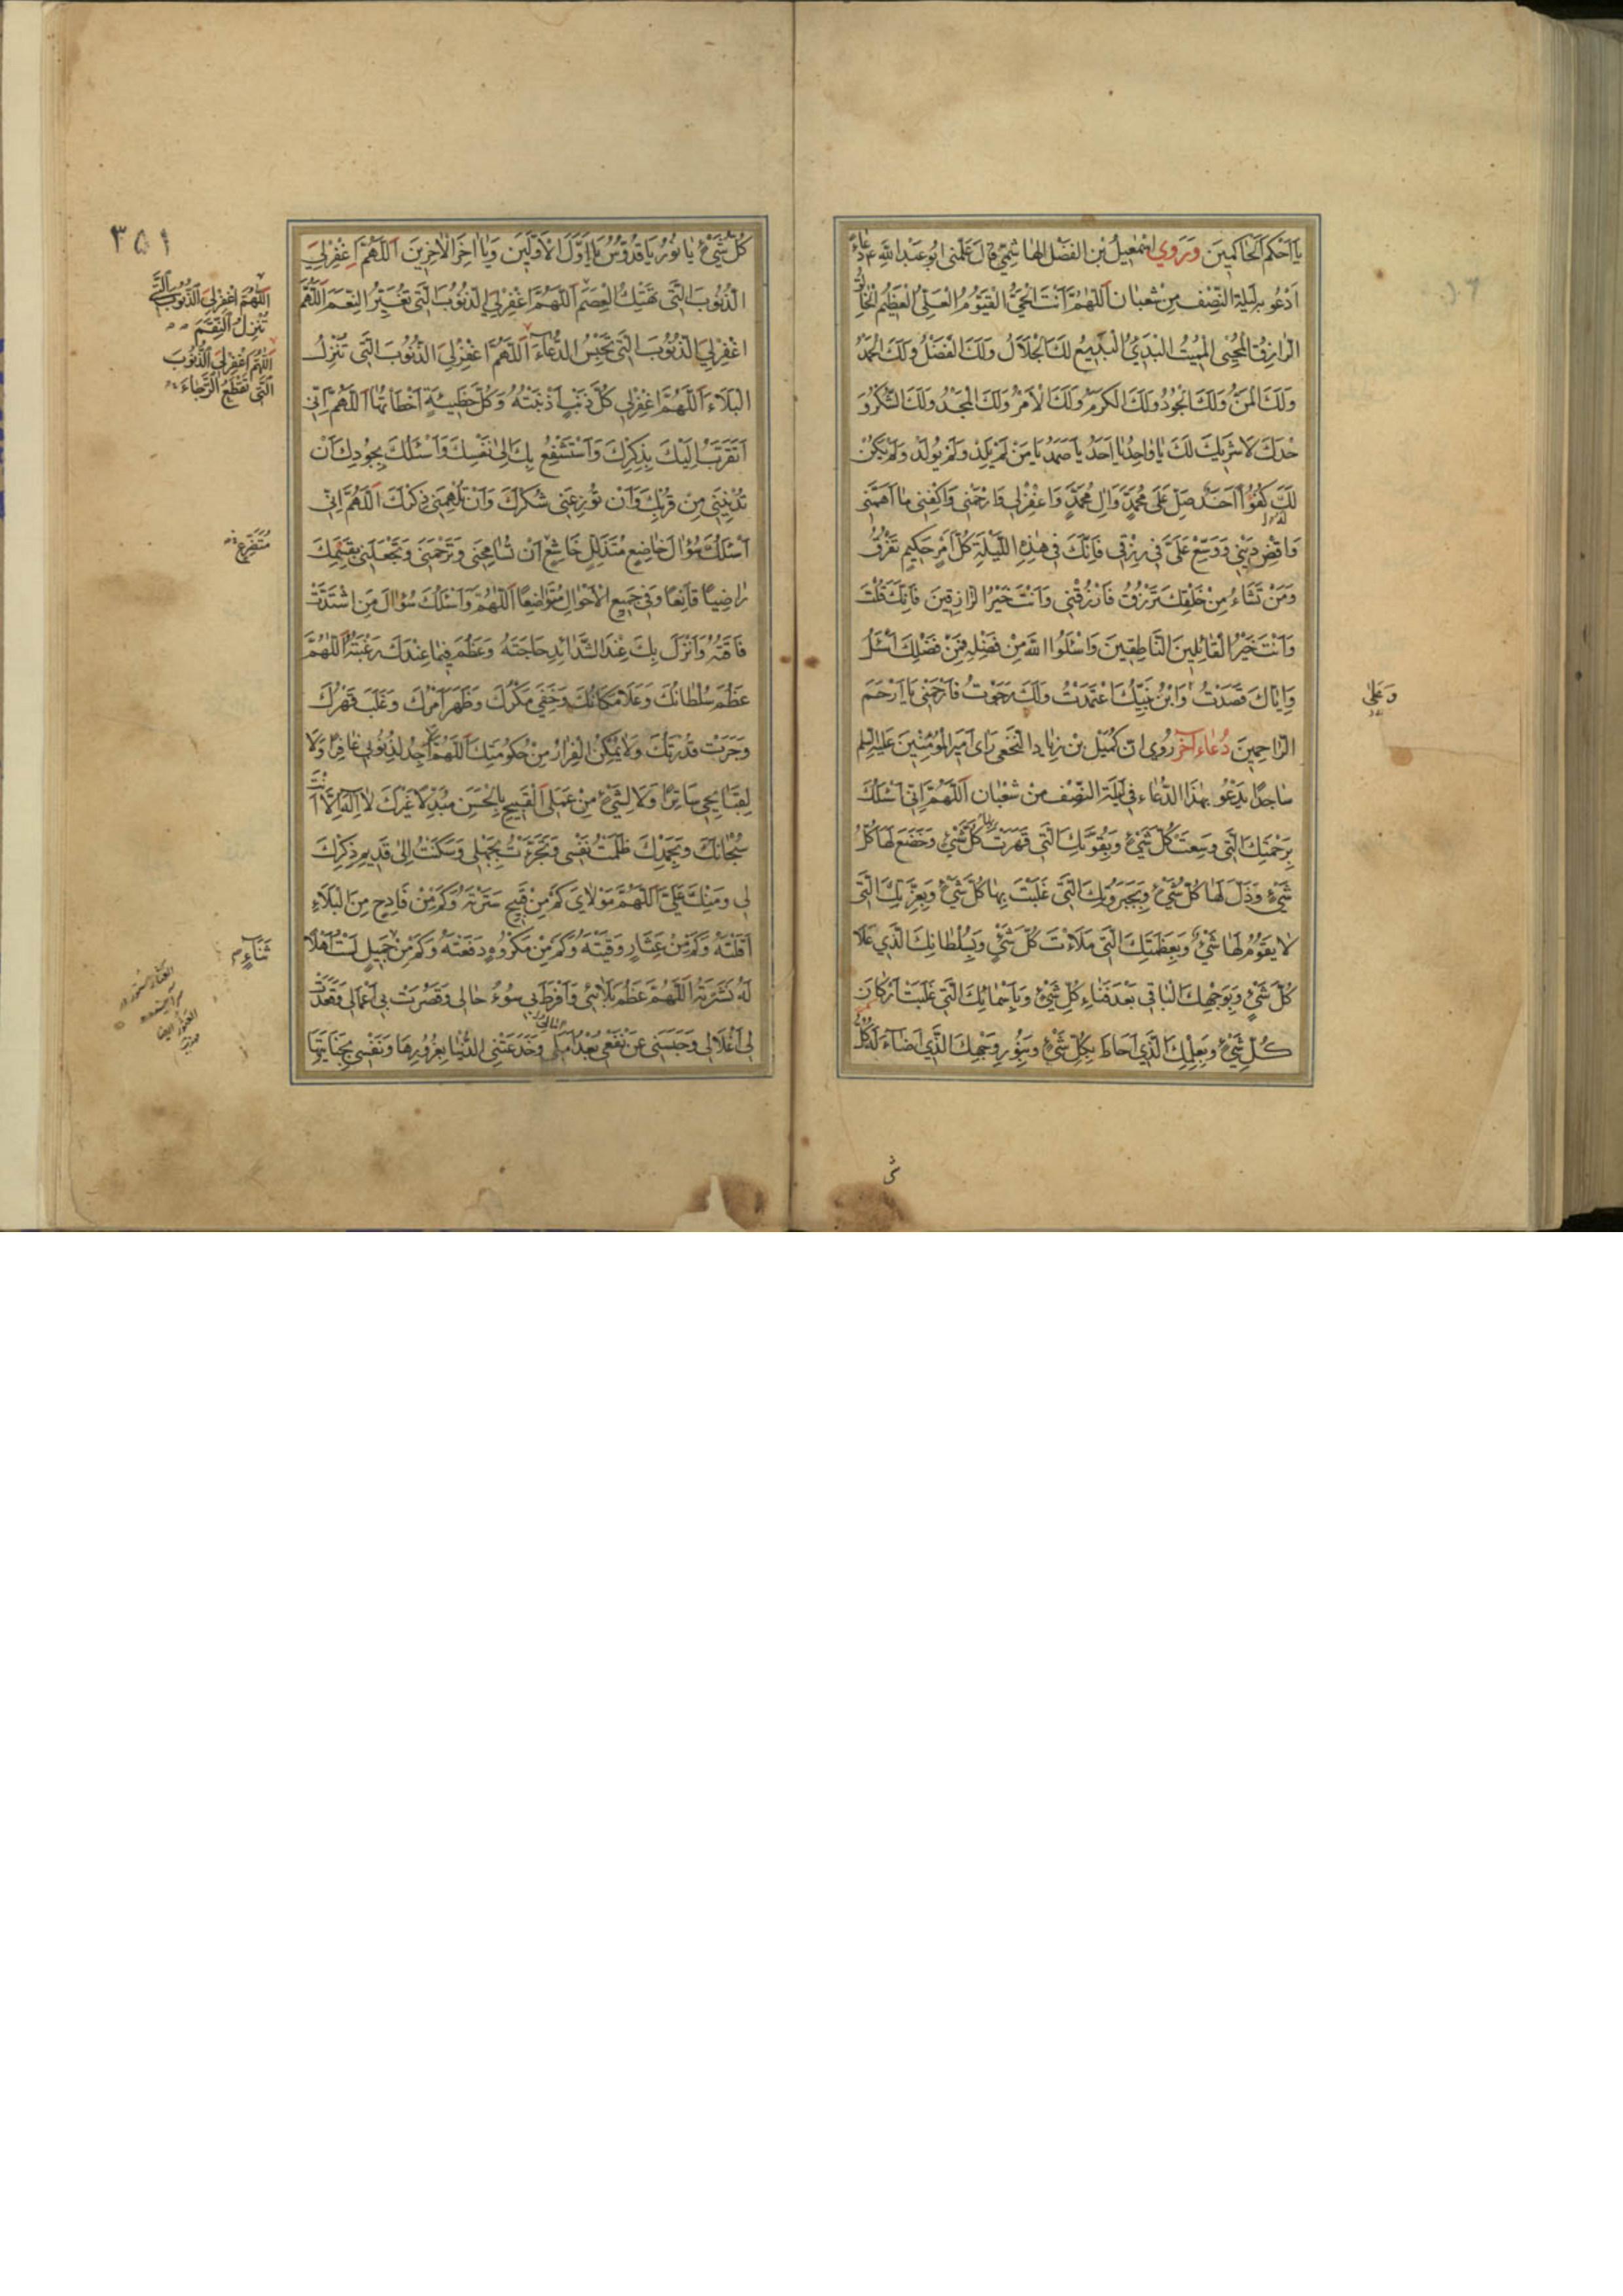 يَا اَحْكَمَ الْحَاكِمِينَ وَرَوٰي اِسْمٰعِيلُ بْنُ الْفَضْلِ الْهَاشِمِيُّ قَالَ عَلَّمَنِي اَبُو عَبْدِ اللّٰهِ ع دُعَاءً
اَدْعُو بِهِ لَيْلَةَ النِّصْفِ مِنْ شَعْبَانَ اَللّٰهُمَّ اَنْتَ الْحَيُّ الْقَيُّومُ الْعَلِيُّ الْعَظِيمُ الْخَالِقُ
الرَّازِقُ الْمُحْيِي الْمُمِيتُ الْبَدِيءُ الْبَدِيعُ لَكَ الْجَلَالُ وَلَكَ الْفَضْلُ وَلَكَ الْحَمْدُ
وَلَكَ الْمَنُّ وَلَكَ الْجُودُ وَلَكَ الْكَرَمُ وَلَكَ الْاَمْرُ وَلَكَ الْمَجْدُ وَلَكَ الشُّكْرُ وَ
حْدَكَ لَا شَرِيكَ لَكَ يَا وَاحِدُ يَا اَحَدُ يَا صَمَدُ يَا مَنْ لَمْ يَلِدْ وَلَمْ يُولَدْ وَلَمْ يَكُنْ
لَكَ كُفُوًا اَحَدٌ صَلِّ عَلٰى مُحَمَّدٍ وَاٰلِ مُحَمَّدٍ وَاغْفِرْ لِي وَارْحَمْنِي وَاكْفِنِي مَا اَهَمَّنِي
وَاقْضِ دَيْنِي وَوَسِّعْ عَلَيَّ فِي رِزْقِي فَاِنَّكَ فِي هٰذِهِ اللَّيْلَةِ كُلَّ اَمْرٍ حَكِيمٍ تَفْرُقُ
وَمَنْ تَشَاءُ مِنْ خَلْقِكَ تَرْزُقُ فَارْزُقْنِي وَاَنْتَ خَيْرُ الرَّازِقِينَ فَاِنَّكَ قُلْتَ
وَاَنْتَ خَيْرُ الْقَائِلِينَ النَّاطِقِينَ وَاسْئَلُوا اللّٰهَ مِنْ فَضْلِهِ فَمِنْ فَضْلِكَ اَسْئَلُ
وَاِيَّاكَ قَصَدْتُ وَابْنَ نَبِيِّكَ اعْتَمَدْتُ وَلَكَ رَجَوْتُ فَارْحَمْنِي يَا اَرْحَمَ
وَعَلٰى
الرَّاحِمِينَ دُعَاءٌ آخَرُ رُوِيَ اَنَّ كُمَيْلَ بْنَ زِيَادٍ النَّخَعِيَّ رَاٰى اَمِيرَ الْمُؤْمِنِينَ عَلَيْهِ السَّلٰمُ
سَاجِدًا يَدْعُو بِهٰذَا الدُّعَاءِ فِي لَيْلَةِ النِّصْفِ مِنْ شَعْبَانَ اَللّٰهُمَّ اِنِّي اَسْئَلُكَ
بِرَحْمَتِكَ الَّتِي وَسِعَتْ كُلَّ شَيْءٍ وَبِقُوَّتِكَ الَّتِي قَهَرْتَ بِهَا كُلَّ شَيْءٍ وَخَضَعَ لَهَا كُلُّ
شَيْءٍ وَذَلَّ لَهَا كُلُّ شَيْءٍ وَبِجَبَرُوتِكَ الَّتِي غَلَبْتَ بِهَا كُلَّ شَيْءٍ وَبِعِزَّتِكَ الَّتِي
لَا يَقُومُ لَهَا شَيْءٌ وَبِعَظَمَتِكَ الَّتِي مَلَأَتْ كُلَّ شَيْءٍ وَبِسُلْطَانِكَ الَّذِي عَلَا
كُلَّ شَيْءٍ وَبِوَجْهِكَ الْبَاقِي بَعْدَ فَنَاءِ كُلِّ شَيْءٍ وَبِاَسْمَائِكَ الَّتِي غَلَبَتْ اَرْكَانَ
كُلِّ شَيْءٍ وَبِعِلْمِكَ الَّذِي اَحَاطَ بِكُلِّ شَيْءٍ وَبِنُورِ وَجْهِكَ الَّذِي اَضَاءَ لَهُ كُلُّ
٣٥١
كُلُّ شَيْءٍ يَا نُورُ يَا قُدُّوسُ يَا اَوَّلَ الْاَوَّلِينَ وَيَا اٰخِرَ الْاٰخِرِينَ اَللّٰهُمَّ اغْفِرْ لِيَ
الذُّنُوبَ الَّتِي تَهْتِكُ الْعِصَمَ اَللّٰهُمَّ اغْفِرْ لِيَ الذُّنُوبَ الَّتِي تُغَيِّرُ النِّعَمَ اَللّٰهُمَّ
اَللّٰهُمَّ اغْفِرْ لِيَ الذُّنُوبَ الَّتِي
تُنْزِلُ النِّقَمَ
اغْفِرْ لِيَ الذُّنُوبَ الَّتِي تَحْبِسُ الدُّعَاءَ اَللّٰهُمَّ اغْفِرْ لِيَ الذُّنُوبَ الَّتِي تُنْزِلُ
اَللّٰهُمَّ اغْفِرْ لِيَ الذُّنُوبَ
الَّتِي تَقْطَعُ الرَّجَاءَ
الْبَلَاءَ اَللّٰهُمَّ اغْفِرْ لِي كُلَّ ذَنْبٍ اَذْنَبْتُهُ وَكُلَّ خَطِيئَةٍ اَخْطَاْتُهَا اَللّٰهُمَّ اِنِّي
اَتَقَرَّبُ اِلَيْكَ بِذِكْرِكَ وَاَسْتَشْفِعُ بِكَ اِلٰى نَفْسِكَ وَاَسْئَلُكَ بِجُودِكَ اَنْ
تُدْنِيَنِي مِنْ قُرْبِكَ وَاَنْ تُوزِعَنِي شُكْرَكَ وَاَنْ تُلْهِمَنِي ذِكْرَكَ اَللّٰهُمَّ اِنِّي
اَسْئَلُكَ سُؤٰالَ خَاضِعٍ مُتَذَلِّلٍ خَاشِعٍ اَنْ تُسَامِحَنِي وَتَرْحَمَنِي وَتَجْعَلَنِي بِقِسْمِكَ
مُتَضَرِّعٍ
رَاضِيًا قَانِعًا وَفِي جَمِيعِ الْاَحْوَالِ مُتَوَاضِعًا اَللّٰهُمَّ وَاَسْئَلُكَ سُؤَالَ مَنِ اشْتَدَّتْ
فَاقَتُهُ وَاَنْزَلَ بِكَ عِنْدَ الشَّدَائِدِ حَاجَتَهُ وَعَظُمَ فِيمَا عِنْدَكَ رَغْبَتُهُ اَللّٰهُمَّ
عَظُمَ سُلْطَانُكَ وَعَلَا مَكَانُكَ وَخَفِيَ مَكْرُكَ وَظَهَرَ اَمْرُكَ وَغَلَبَ قَهْرُكَ
وَجَرَتْ قُدْرَتُكَ وَلَا يُمْكِنُ الْفِرَارُ مِنْ حُكُومَتِكَ اَللّٰهُمَّ لَا اَجِدُ لِذُنُوبِي غَافِرًا وَلَا
لِقَبَائِحِي سَاتِرًا وَلَا لِشَيْءٍ مِنْ عَمَلِيَ الْقَبِيحِ بِالْحَسَنِ مُبَدِّلًا غَيْرَكَ لَا اِلٰهَ اِلَّا اَنْتَ
سُبْحَانَكَ وَبِحَمْدِكَ ظَلَمْتُ نَفْسِي وَتَجَرَّأْتُ بِجَهْلِي وَسَكَنْتُ اِلٰى قَدِيمِ ذِكْرِكَ
لِي وَمَنِّكَ عَلَيَّ اَللّٰهُمَّ مَوْلَايَ كَمْ مِنْ قَبِيحٍ سَتَرْتَهُ وَكَمْ مِنْ فَادِحٍ مِنَ الْبَلَاءِ
اَقَلْتَهُ وَكَمْ مِنْ عِثَارٍ وَقَيْتَهُ وَكَمْ مِنْ مَكْرُوهٍ دَفَعْتَهُ وَكَمْ مِنْ جَمِيلٍ لَسْتُ اَهْلًا
ثَنَاءٍ
لَهُ نَشَرْتَهُ اَللّٰهُمَّ عَظُمَ بَلَائِي وَاَفْرَطَ بِي سُوءُ حَالِي وَقَصُرَتْ بِي اَعْمَالِي وَقَعَدَتْ
بِي اَغْلَالِي وَحَبَسَنِي عَنْ نَفْعِي بُعْدُ اَمَلِي وَخَدَعَتْنِي الدُّنْيَا بِغُرُورِهَا وَنَفْسِي بِجِنَايَتِهَا